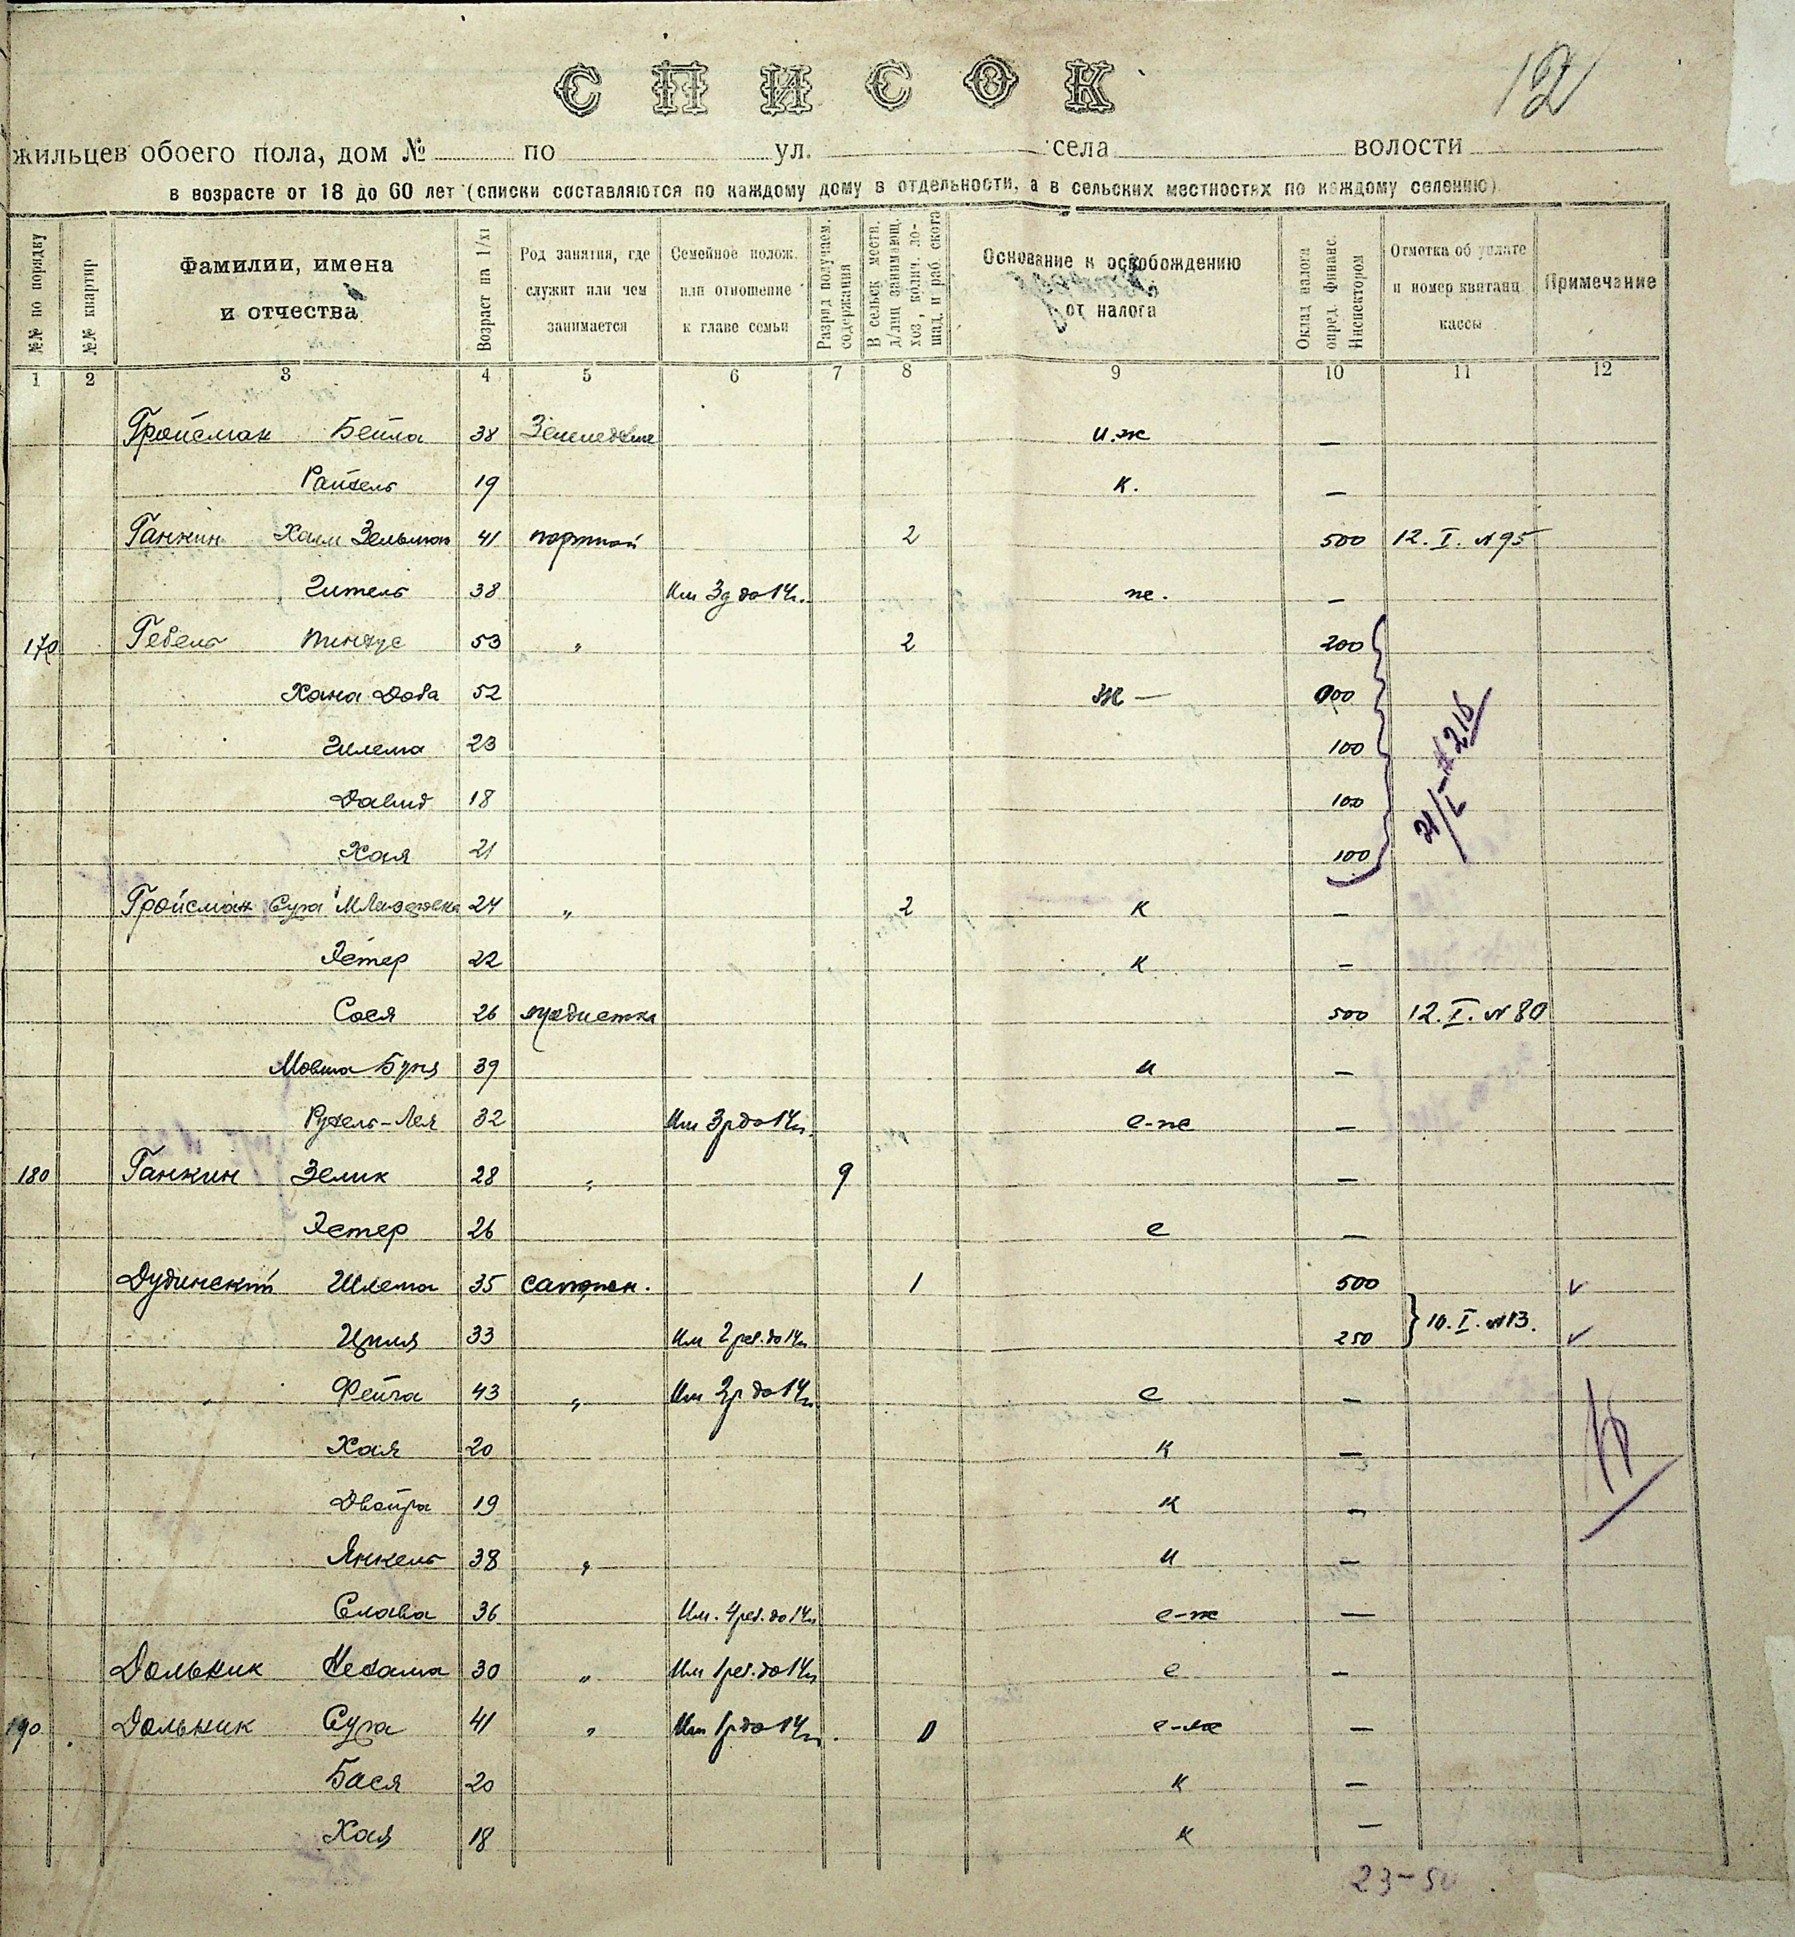 СПИСОК
12
жильцев обоего пола, дом № по ул. села волости
в возрасте от 18 до 60 лет (списки составляются по каждому дому в отдельности, а в сельских местностях по каждому селению)
№№ по порядку
№№ квартир
Фамилии, имена и отчества
Возраст на 1/XI
Род занятия, где служит или чем занимается
Семейное полож. или отношение к главе семьи
Разряд получаем. содержания
В сельск местн. д/лиц занимающ. хоз, колич. лошад. и раб. скота
Основание к освобождению от налога
Оклад налога опред. Финанс. Инспектором
Отметка об уплате и номер квитанц кассы
Примечание
1 2 3 4 5 6 7 8 9 10 11 12
Гройсман Бейла 38 Земледелие и.ж —
Райхель 19 к. —
Ганкин Хаим Зельман 41 портной 2 500 12. I. №95
Гитель 38 Им 3д до 14л. ж. —
170 Гебель Пинхус 53 " 2 200
Хана Доба 52 Ж — 100
Шлема 23 100
Давид 18 100
Хая 21 100
21/I — №216
Гройсман Сура 24 " 2 к —
Эстер 22 к —
Сося 26 модистка 500 12. I. №80
Мовша Буня 39 и —
Рухель-Лея 32 Им 3р до 14л. е-ж —
180 Ганкин Зелик 28 " 9 —
Эстер 26 е —
Дудинский Шлема 35 сапожн. 1 500 v
Ципя 33 Им 2 реб. до 14л 250 } 10. I. №13. v
Фейга 43 " Им 2р до 14л е —
Хая 20 к —
Двойра 19 к —
Янкель 38 " и —
Слава 36 Им. 4 реб. до 14л е-ж —
Дольник Нехама 30 " Им 1 реб. до 14л е —
190 Дольник Сура 41 " Им 1р до 14л. е-ж —
Бася 20 к —
Хая 18 к —